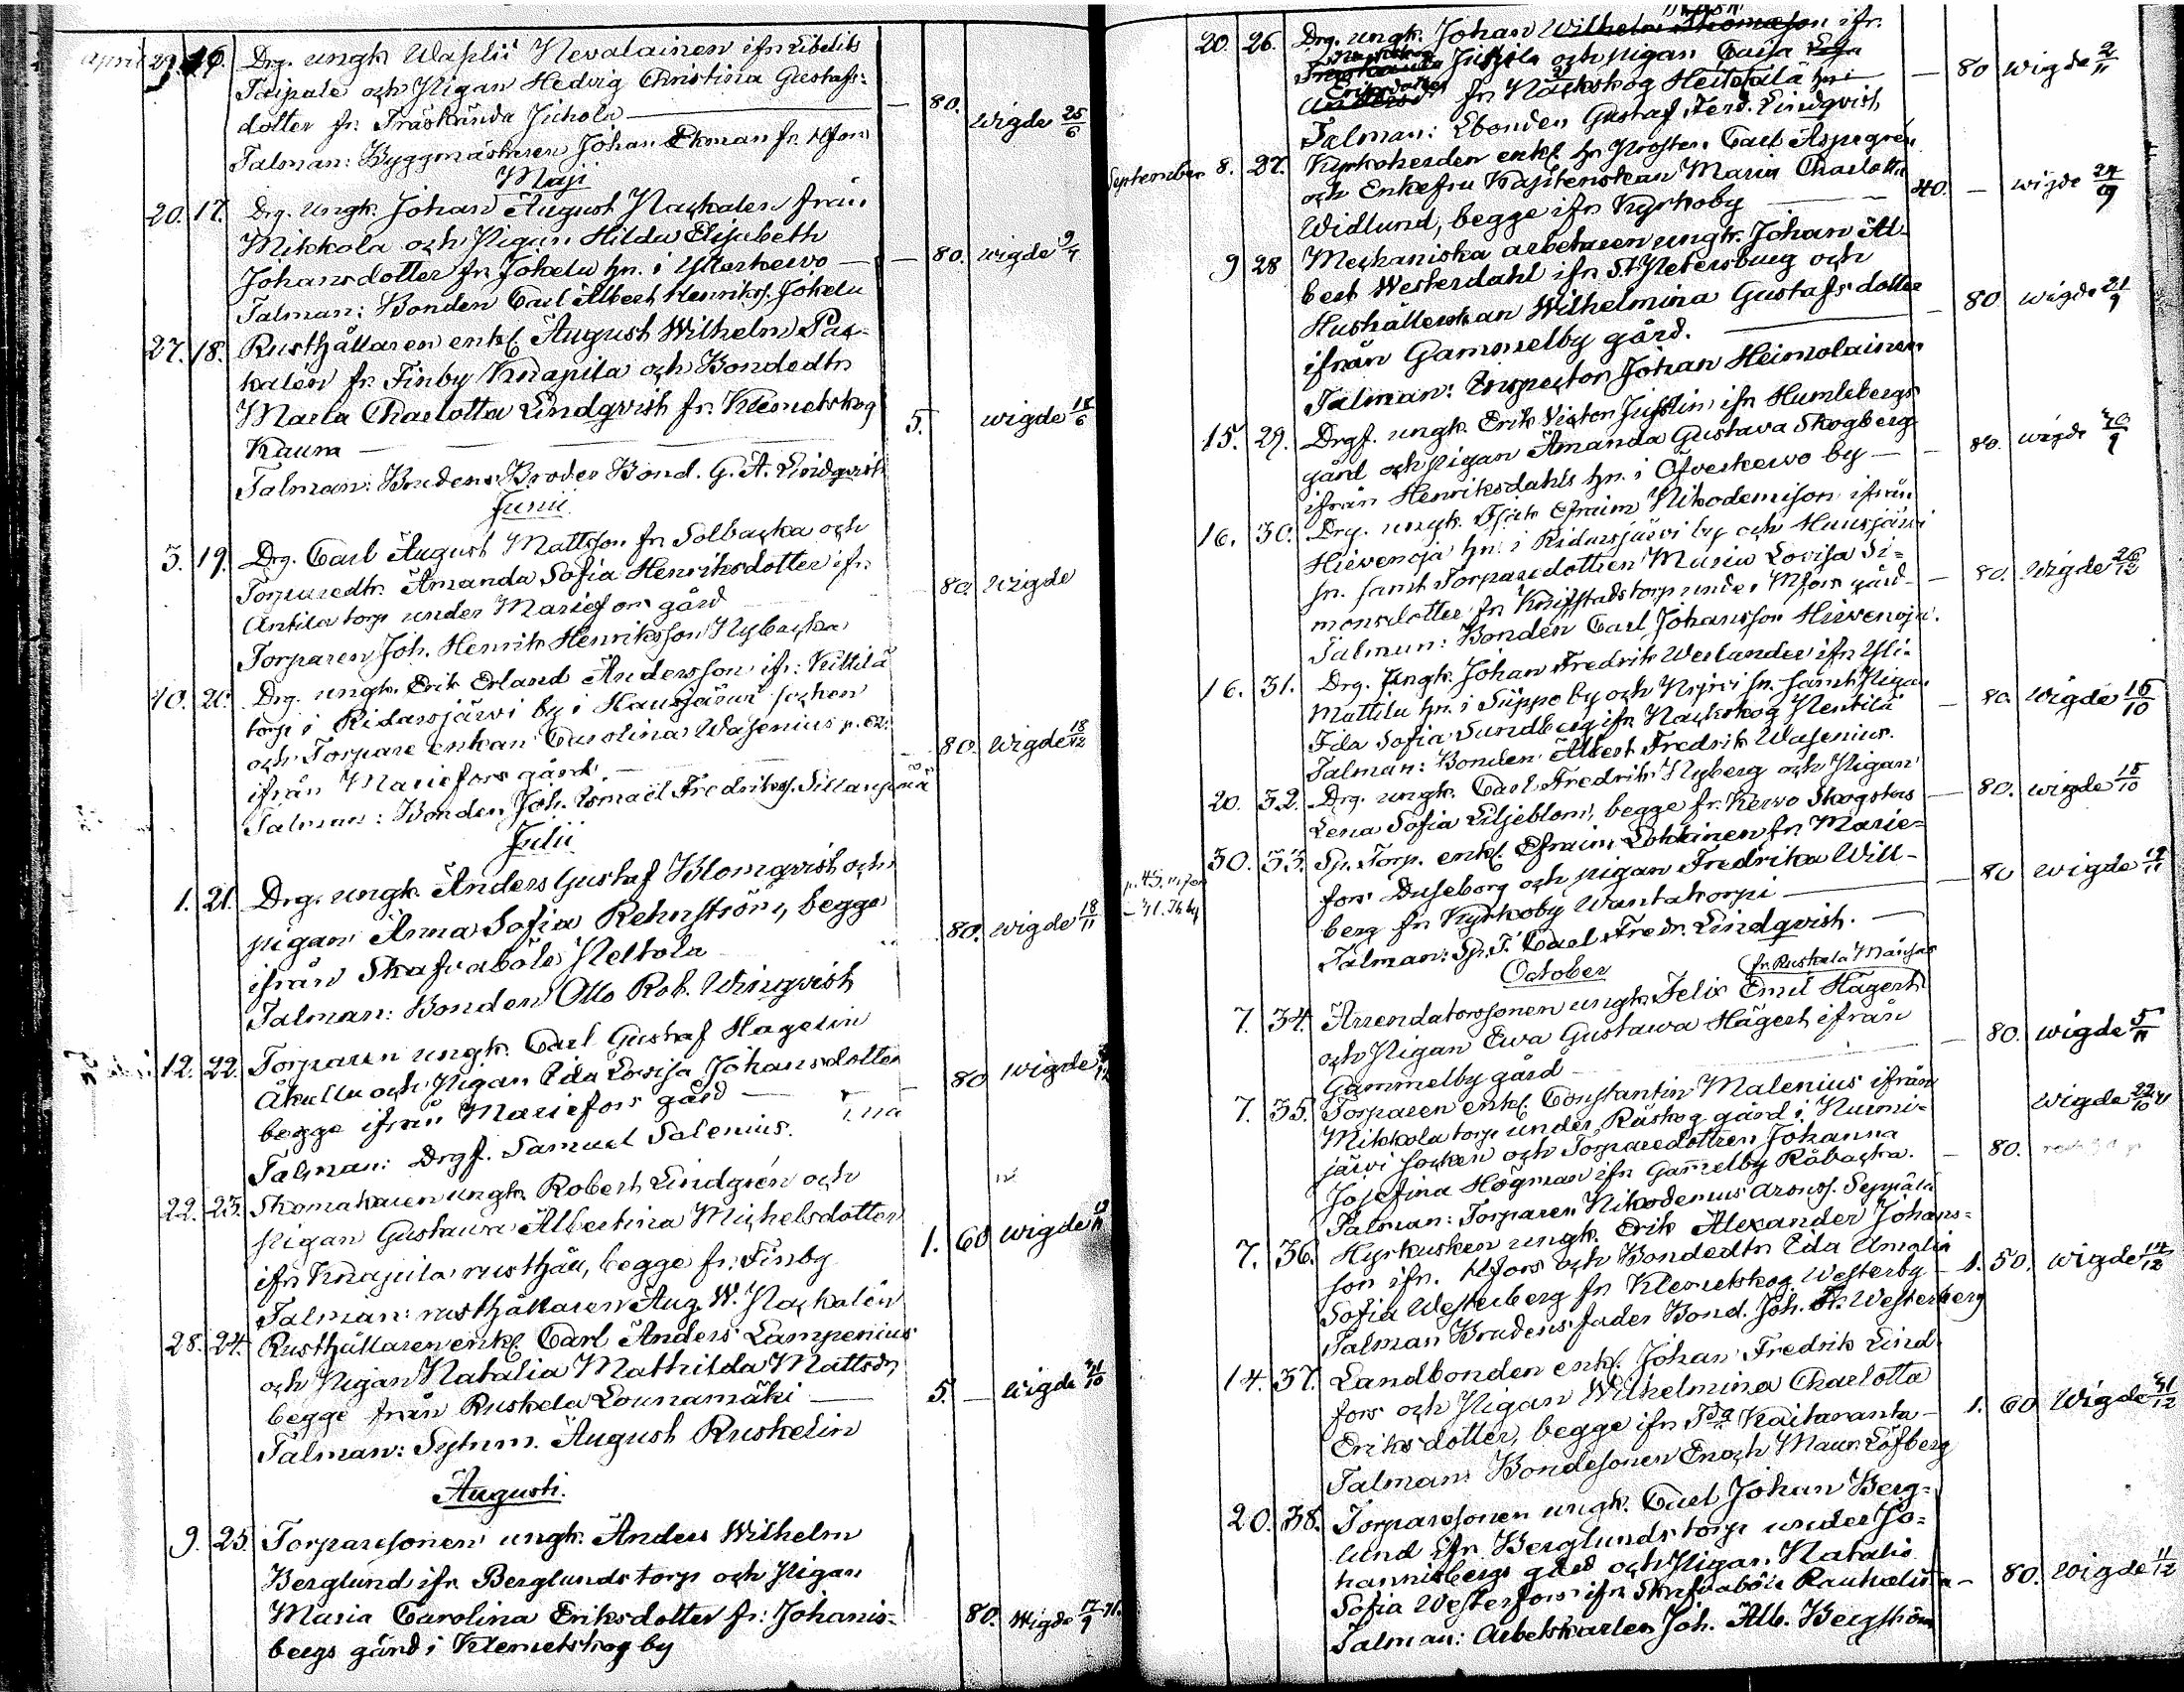 April 29. 16. Drg. ungk. Waplii Nevalainen ifn Libelits
Taipale och Pigan Hedvig Christina Gustafs:
dotter fr. Träskända Juhola — 80. wigde 25/6
Talman: Byggmästaren Johan Ekman fr. Hfors
Maji
20. 17. Drg. ungk. Johan August Nackalen från
Mikkola och Pigan Hilda Elisabeth
Johansdotter fr. Jokela hn. i Ytterkervo — 80. wigde 9/7
Talman: Bonden Carl Albert Henrikss. Jokela
27. 18. Rusthållaren enkl. August Wilhelm Pac-
kalén fr. Finby Knapila och Bondedtr
Maria Charlotta Lindqvist fr. Klemetskog
Kaum — 5. wigde 18/6
Talman: Brudens Broder Bond. G. A. Lindqvist
Junii
3. 19. Drg. Carl August Mattsson fr. Solbacka och
Torparedtr. Amanda Sofia Henriksdotter ifr.
Antila torp under Mariefors gård — 80. wigde
Torparen Joh. Henrik Henriksson Nybacka
10. 20. Drg. ungk. Erik Erland Andersson ifr: Kittilä
torp i Ridasjärvi by i Hausjärvi socken
och Torpare enkan Carolina Wasenius p. 62.
ifrån Mariefors gård — 80. wigde 18/12
Talman: Bonden Joh. Ismaël Fredrikss. Sillanpää
Julii
1. 21. Drg. ungk. Anders Gustaf Blomqvist och
pigan Anna Sofia Rehnström, begge
ifrån Skafvaböle Peltola 80. wigde 18/11
Talman: Bonden Otto Rob. Winqvist
12. 22. Torparen ungk. Carl Gustaf Hagelin
Åkulla och Pigan Ida Lovisa Johansdotter
begge ifrån Mariefors gård — 80 wigde
Talman: Drgf. Samuel Salenius.
22. 23. Skomakaren ungk. Robert Lindgrén och
pigan Gustava Albertina Michelsdotter
ifr. Knapila rusthåll, begge fr: Finby 1. 60 wigde
Talman: rusthållaren Aug. W. Packalén
28. 24. Rusthållaren enkl. Carl Anders Lampenius
och Pigan Natalia Mathilda Mattsdr,
begge från Ruskela Lounamäki — 5. — wigde 31/10
Talman: Sytnm. August Ruskelin
Augusti.
9. 25. Torparesonen ungk. Anders Wilhelm
Berglund ifr. Berglunds torp och Pigan
Maria Carolina Eriksdotter fr: Johanis-
bergs gård i Klemetskog by 80. wigde
20. 26. Drg. ungk. Johan Wilhelm Thomasson ifr.
Juslila och pigan Caisa
Eriksdotter fr Näckskog Heikkilä hn. — 80 wigde 2/11
Talman: Ebonden Gustaf Ferd. Lindqvist
September 8. 27. Kyrkoherden enkl. hr Prosten Carl Aspegrén
och Enkefru Kaptenskan Maria Charlotta
Widlund, begge ifr Kyrkoby — 40. — wigde 24/9
9 28 Mechaniska arbetaren ungk. Johan Al-
bert Westerdahl ifr. St Petersburg och
Hushållerskan Wilhelmina Gustafsdotter
ifrån Gammelby gård. — 80. wigde 21/9
Talman: Inspector Johan Heimolainen
15. 29. Drgf. ungk. Erik Victor Jusslin ifr Humlebergs
gård och pigan Amanda Gustava Skogberg
ifrån Henriksdahls hn. i Öfverkervo by — 80. wigde
16. 30. Drg. ungk. Isak Efraim Nikodemison ifrån
Hirvenoja hn. i Ridasjärvi by och Hausjärvi
sn. samt Torparedottren Maria Lovisa Si-
monsdotter fr Knifstads torp under Mfors gård — 80. wigde 26/12
Talman: Bonden Carl Johansson Hirvenoja.
16. 31. Drg. Ungk. Johan Fredrik Werlander ifn Yli-
Mattila hn. i Suppo by och Nrjrvi sn. samt Pigan
Ida Sofia Sundberg ifr. Nackskog Pentilä — 80. wigde 15/10
Talman: Bonden Albert Fredrik Wasenius.
20. 32. Drg. ungk. Carl Fredrik Nyberg och Pigan
Lena Sofia Liljeblom, begge fr. Kervo Skogsters — 80. wigde 15/10
p. 45. mfors
30. 33. Sp. Torp. enkl. Efraim Lokkinen fr. Marie-
fors Duseborg och pigan Fredrika Will-
berg fr Kyrkoby Wantakorpi — 80 wigde
Talman: Sp. T. Carl Fredr. Lindqvist.
October
fr. Ruskela Mänsas
7. 34. Arrendatorsonen ungk. Felix Emil Hägert
och Pigan Eva Gustawa Hägert ifrån
Gammelby gård — 80. wigde 5/11
7. 35. Torparen enkl. Constantin Malenius ifrån wigde 22/10 71
Mikkola torp under Råskog gård i Nurmi-
järvi socken och Torparedottren Johanna
Josefina Högman ifn Gammelby Råbacka. — 80.
Talman: Torparen Nikodemus Aronss. Seppälä
7. 36. Hyrkusken ungk. Erik Alexander Johans-
son ifr. Hfors och Bondedtr Ida Amalia
Sofia Westerberg fr Klemetskog Westerby — 1. 50. wigde 14/12
Talman Brudens fader Bond. Joh. Fr. Westerberg
14. 37. Landbonden enkl. Johan Fredrik Lind-
fors och Pigan Wilhelmina Charlotta
Eriksdotter, begge ifn Tda Kaitaranta — 1. 60 wigde 31/12
Talman: Bondesonen Enoch Maur. Löfberg
20. 38. Torparesonen ungk. Carl Johan Berg-
lund ifr. Berglunds torp under Jo-
hannisbergs gård och Pigan Natalia
Sofia Westerfors ifr. Skafvaböle Rauhalista — 80. wigde 11/12
Talman: Arbetskarlen Joh. Alb. Bergström